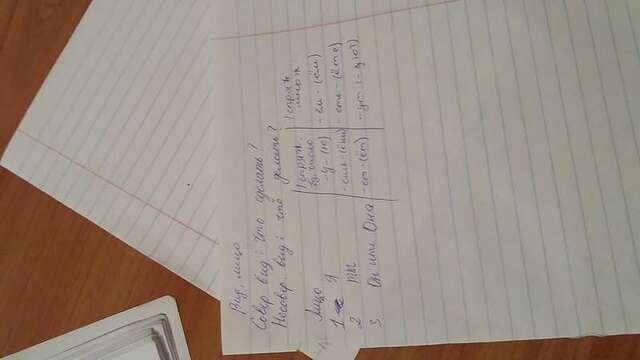 Вид, лицо
Совер вид: что сделать?
Несовер. вид: что делать?
Лицо | 1 спряж. ед. число | 1 спряж множ
1 я | -у-(ю) | -ем-(ём)
2 ты | -ешь-(ёшь) | -ете-(ёте)
3 Он или Она | -ет-(ёт) | -ут-(-ют)